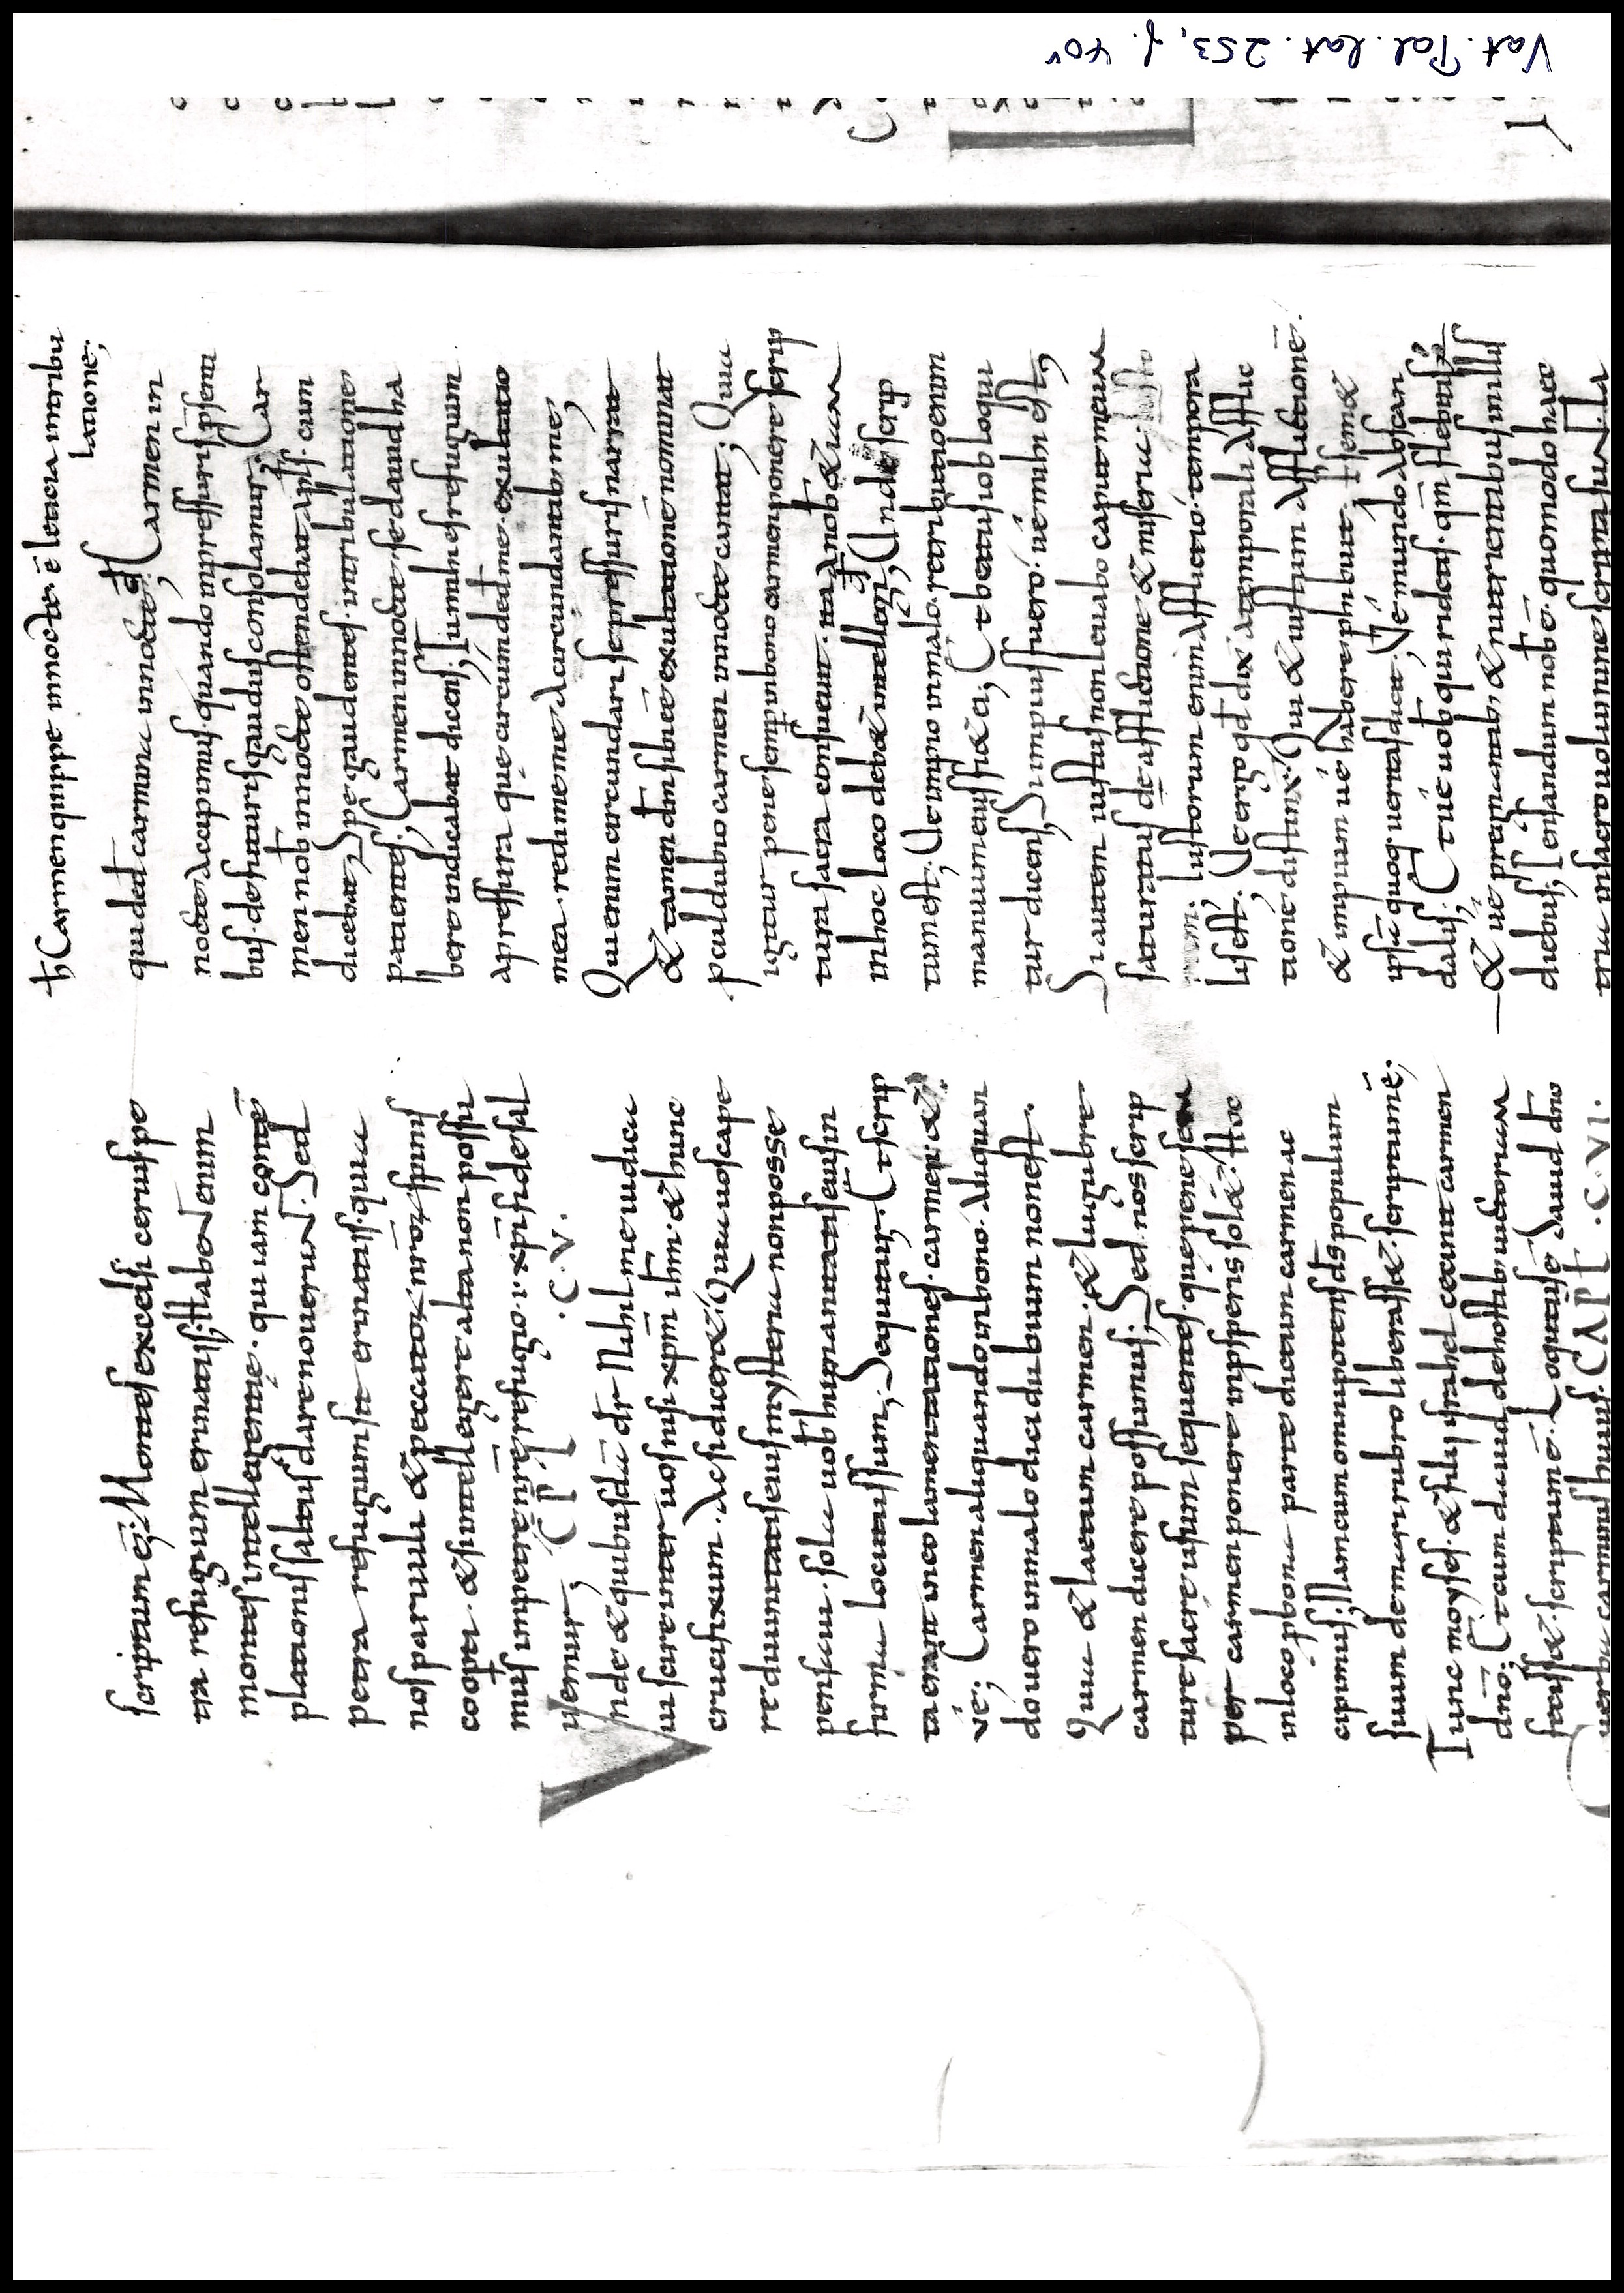 Vat. Pal. lat. 253, f. 40v
scriptum ē; Montes excelsi ceruis pe
tra refugium erinatiis; Habent enim
montes intellegentię. qui iam contē
plationis saltus dare nouerunt. Sed
petra refugium sit erinatiis. quia
nos paruuli & peccatorum nrorum spinis
cooperti. & si intellegere alta non possu
mus in petrę nrę refugio. i. xpi fide sal
uemur; CPL . CV.
Vnde & quibusdā dr Nihil me iudica
ui scire inter uos nisi xpm ihm. & hunc
crucifixum. Ac si diceret; Quia uos cape
re diuinitatis eius mysteria non posse
pensaui. sola uob humanitatis eius in
firma locutus sum; Sequitur. Et scrip
ta erant in eo lamentationes. carmen. &
vę; Carmen aliquando in bono. Aliquan
do uero in malo dici dubium non est.
Quia & laetum carmen. & lugubre
carmen dicere possumus; Sed nos scrip
turę sacrę usum sequentes. quę pene sem
per carmen ponere in psperis solet. hoc
in loco p bona parte dictum carmen ac
cipimus; Nam cum omnipotens ds populum
suum de mari rubro liberasset. scriptum ē;
Tunc moyses & filii israhel cecinit carmen
dno; Et cum dauid de hostib uictoriam
fecisset. scriptum ē. Locutus ē Dauid dno
uerba carminis huius. CAPL . C.VI.
Carmen quippe in nocte. ē letitia in tribu
latione;
qui dedit carmina in nocte; Carmen in
nocte Accipimus. quando in pressuris psenti
bus. de futuris gaudiis consolamur; Car
men nob in nocte ostendebat apls. cum
dicebat; Spe gaudentes in tribulatione
patientes; Carmen in nocte. se dauid ha
bere indicabat dicens; Tu mihi es refugium
A pressura quę circumdedit me. exultatio
mea. redime me A circundantib me;
Qui enim circundari se pressuris narrat
& tamen dm sibi ēē exultationē nominat
pculdubio carmen in nocte cantat; Quia
igitur pene semp in bono carmen ponere scrip
tura sacra consueuit. ita A nob etiam
in hoc loco debet intellegi; Vnde scrip
tum est; Ve impio in malo. retributio enim
manuum eius fiet ei; Et beatus iob loqui
tur dicens; Si impius fuero. uę mihi est;
Si autem iustus non leuabo caput meum
saturatus de afflictione & miseria;
Iustorum enim afflictio. tempora
lis est; Ve ergo qd dix A temporali afflic
tionē distinx; Qui & iustum Afflictionē.
& impium uę habere phibuit. semet
ipsā quoq ueritas dicit; Vę mundo Ab scan
dalis; Et uę uob qui ridetis. qm flebitis;
& uę pregnantib & nutrientibus in illis
diebus; Pensandum nob ē. quomodo haec